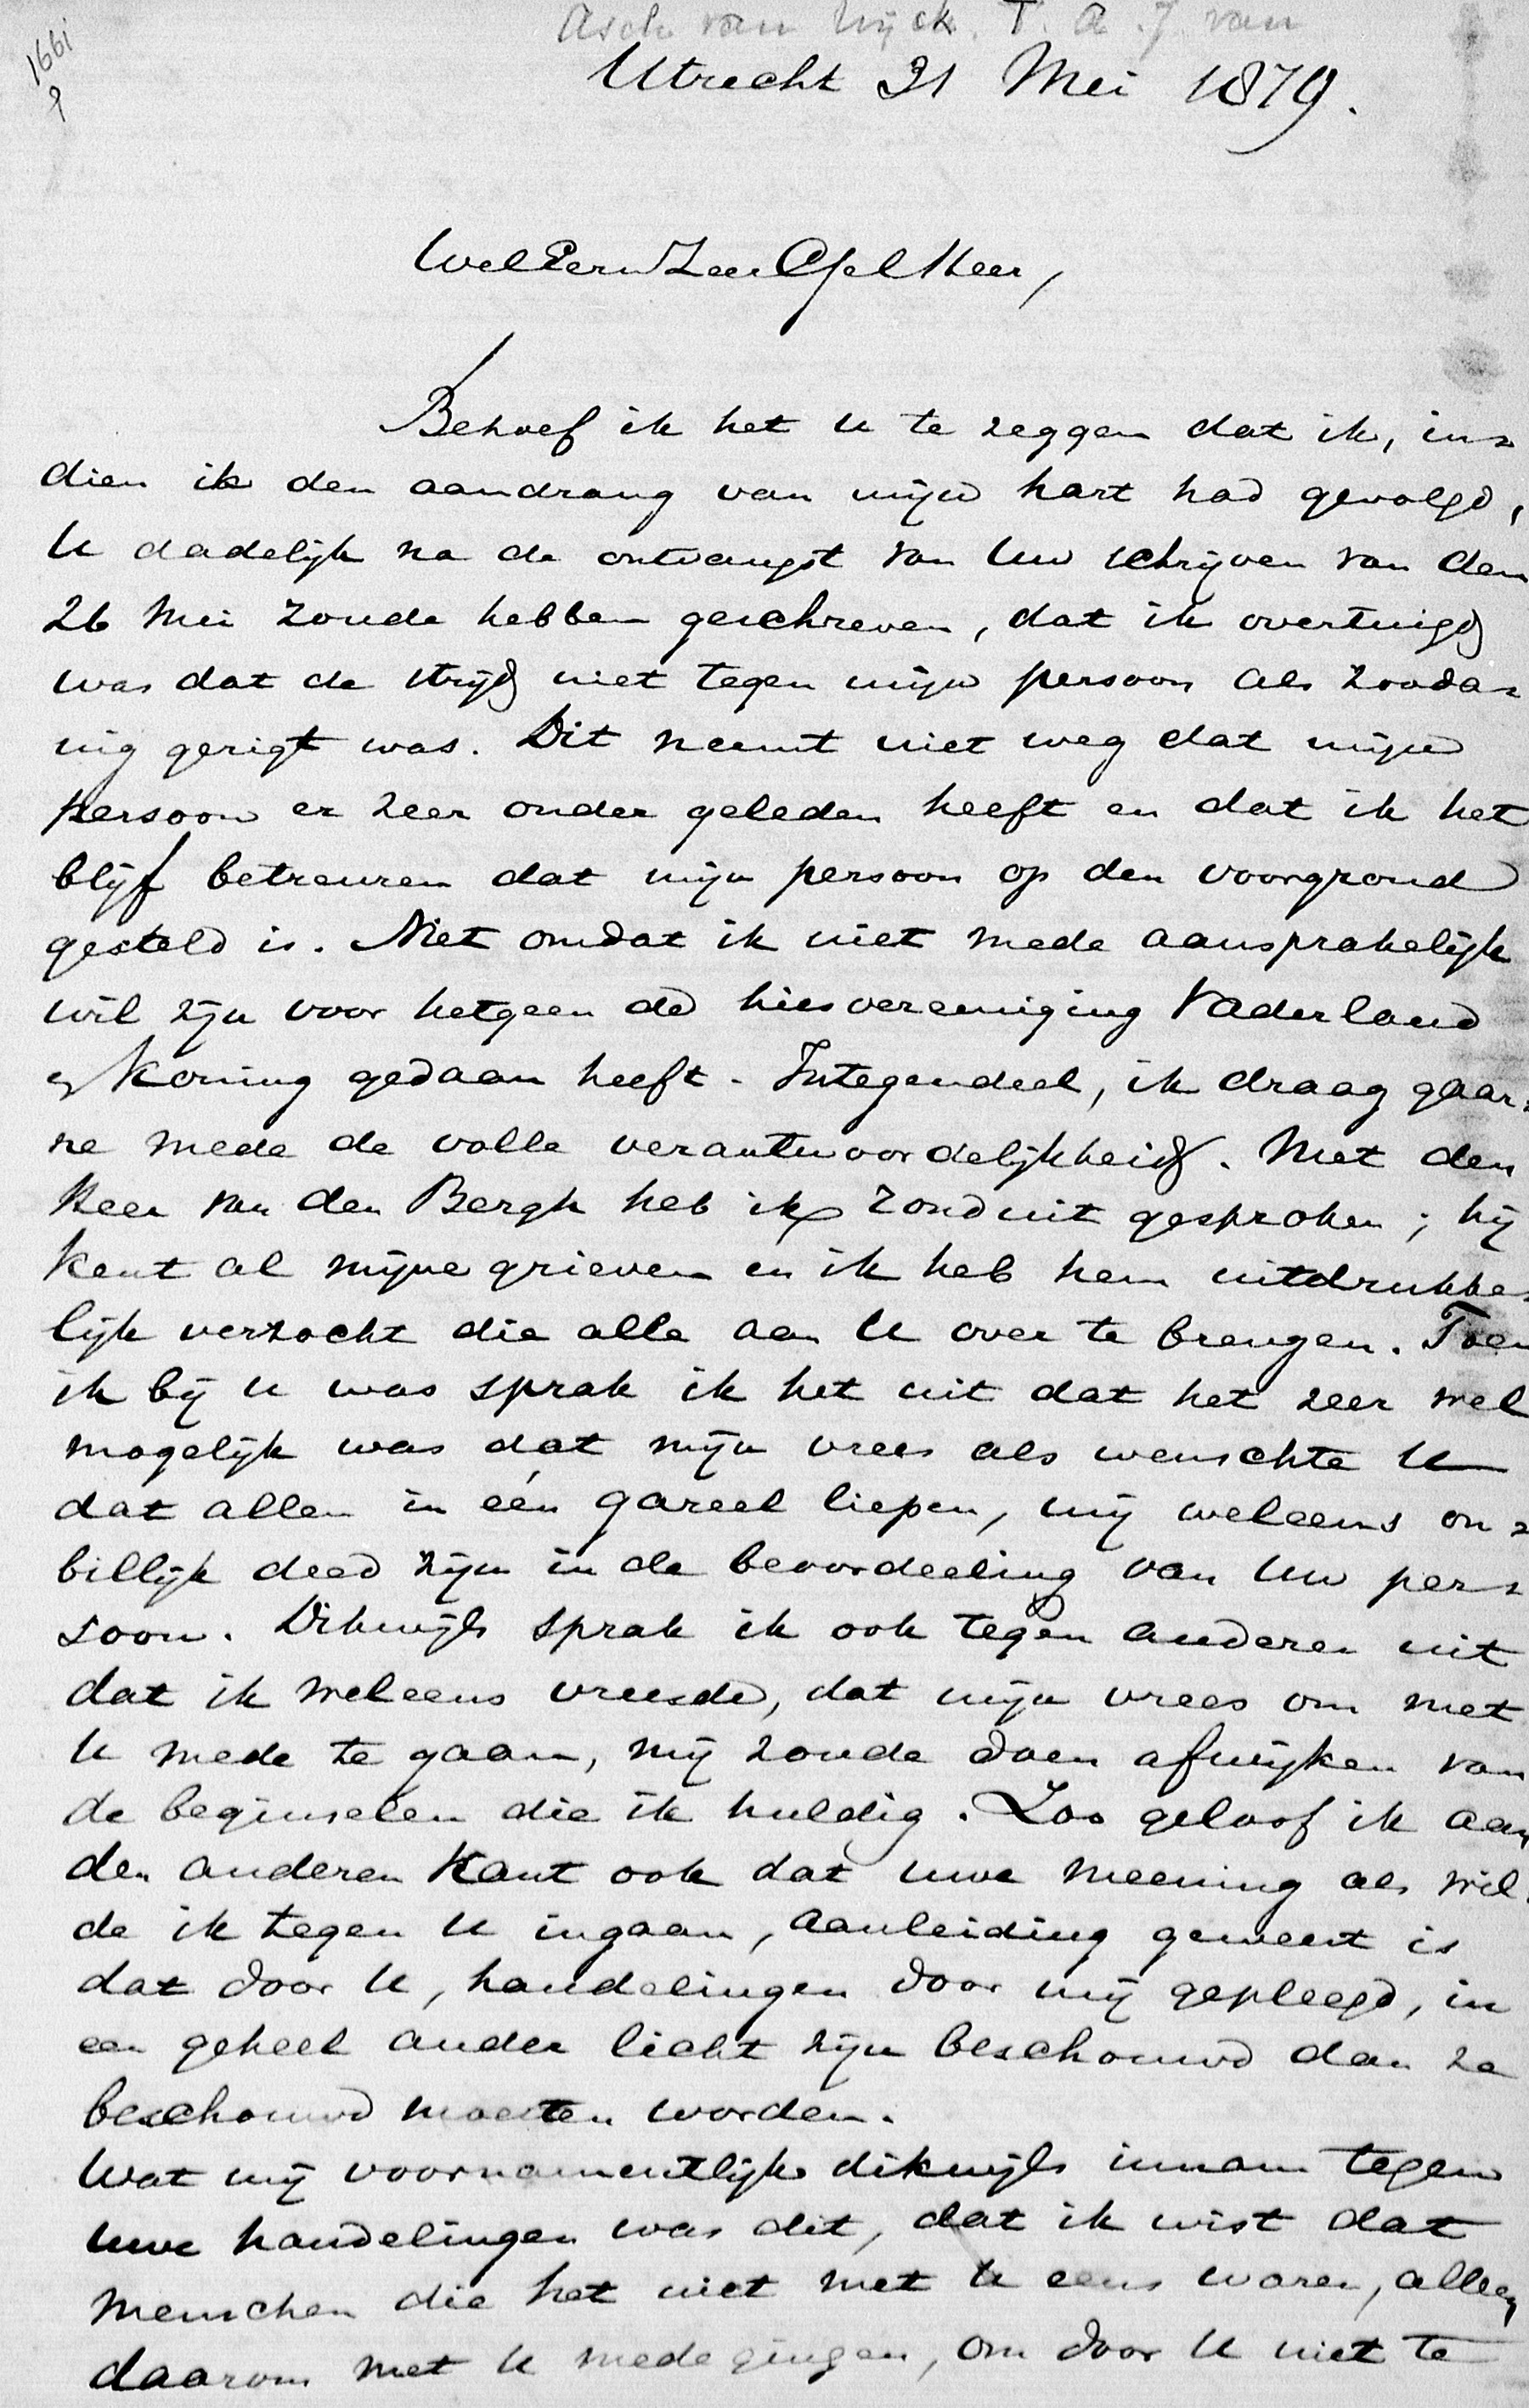 Asch van Wijck. T. A. J. van
1661
Utrecht 31 Mei 1879.
WelEerwZeerGelHeer,
Behoef ik het U te zeggen dat ik, in=
dien ik den aandrang van mijn hart had gevolgd,
U dadelijk na de ontvangst van Uw schrijven van den
26 Mei zoude hebben geschreven, dat ik overtuigd
was dat de strijd niet tegen mijn persoon als zooda=
nig gerigt was. Dit neemt niet weg dat mijn
persoon er zeer onder geleden heeft en dat ik het
blijf betreuren dat mijn persoon op den voorgrond
gesteld is. Niet omdat ik niet mede aansprakelijk
wil zijn voor hetgeen de kiesvereeniging Vaderland
en Koning gedaan heeft. Integendeel, ik draag gaar=
ne mede de volle verantwoordelijkheid. Met den
Heer van den Bergh heb ik ronduit gesproken; hij
kent al mijne grieven en ik heb hem uitdrukke=
lijk verzocht die alle aan U over te brengen. Toen
ik bij U was sprak ik het uit dat het zeer wel
mogelijk was dat mijn vrees als wenschte U
dat allen in één gareel liepen, mij weleens on=
billijk deed zijn in de beoordeeling van Uw per=
soon. Dikwijls sprak ik ook tegen anderen uit
dat ik weleens vreesde, dat mijn vrees om met
U mede te gaan, mij zoude doen afwijken van
de beginselen die ik huldig. Zoo geloof ik aan
den anderen kant ook dat uwe meening als wil=
de ik tegen U ingaan, aanleiding geweest is
dat door U, handelingen door mij gepleegd, in
een geheel ander licht zijn beschouwd dan ze
beschouwd moesten worden.
Wat mij voornamentlijk dikwijls innam tegen
uwe handelingen was dit, dat ik wist dat
menschen die het niet met U eens waren, alleen
daarom met U medegingen, om door U niet te